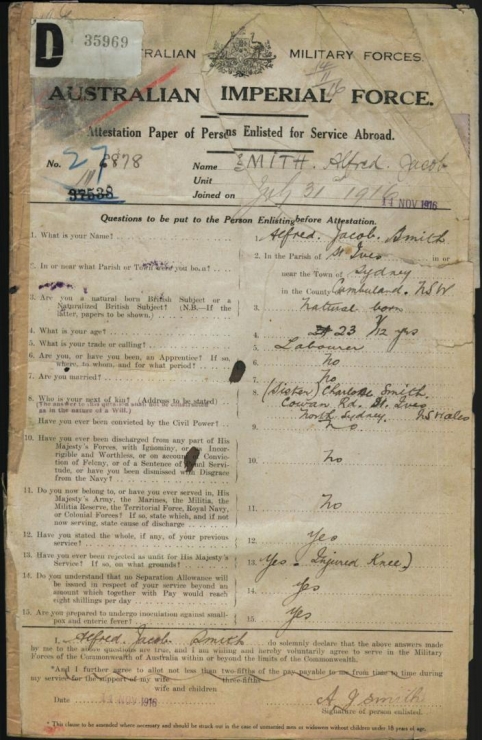 D 35969
AUSTRALIAN MILITARY FORCES.
AUSTRALIAN IMPERIAL FORCE.
Attestation Paper of Persons Enlisted for Service Abroad.
No. 6878 Name SMITH. Alfred. Jacob
27
37538
Unit
Joined on July 31 1916
14 NOV 1916
Questions to be put to the Person Enlisting before Attestation.
1. What is your Name?
Alfred. Jacob. Smith
2. In or near what Parish or Town were you born?
2. In the Parish of St Ives in or
near the Town of Sydney
in the County Cumberland. NSW
3. Are you a natural born British Subject or a
Naturalized British Subject? (N.B.—If the
latter, papers to be shown.)
3. natural born
4. What is your age?
4. 23 yrs
5. What is your trade or calling?
5. Labourer
6. Are you, or have you been, an Apprentice? If so,
where, to whom, and for what period?
6. no
7. Are you married?
7. no
8. Who is your next of kin? (Address to be stated)
as in the nature of a Will.)
(Sister) Charlotte Smith.
Cowan Rd. St. Ives
North Sydney. NS Wales
9. Have you ever been convicted by the Civil Power?
9. no.
10. Have you ever been discharged from any part of His
Majesty's Forces, with Ignominy, or as Incor-
rigible and Worthless, or on account of Convic-
tion of Felony, or of a Sentence of Penal Servi-
tude, or have you been Dismissed with Disgrace
from the Navy?
10. no
11. Do you now belong to, or have you ever served in, His
Majesty's Army, the Marines, the Militia, the
Militia Reserve, the Territorial Force, Royal Navy,
or Colonial Forces? If so, state which, and if not
now serving, state cause of discharge
11. no
12. Have you stated the whole, if any, of your previous
service?
12. yes
13. Have you ever been rejected as unfit for His Majesty's
Service? If so, on what grounds?
13. yes. Injured Knee)
14. Do you understand that no Separation Allowance will
be issued in respect of your service beyond an
amount which together with Pay would reach
eight shillings per day
14. yes
15. Are you prepared to undergo inoculation against small-
pox and enteric fever?
15. yes
I, Alfred Jacob Smith do solemnly declare that the above answers made
by me to the above questions are true, and I am willing and hereby voluntarily agree to serve in the Military
Forces of the Commonwealth of Australia within or beyond the limits of the Commonwealth.
*And I further agree to allot not less than two-fifths of the pay payable to me from time to time during
three-fifths
my service for the support of my wife
wife and children
Date 14 NOV 1916
A J Smith
Signature of person enlisted.
* This clause to be amended where necessary and should be struck out in the case of unmarried men or widowers without children under 18 years of age.